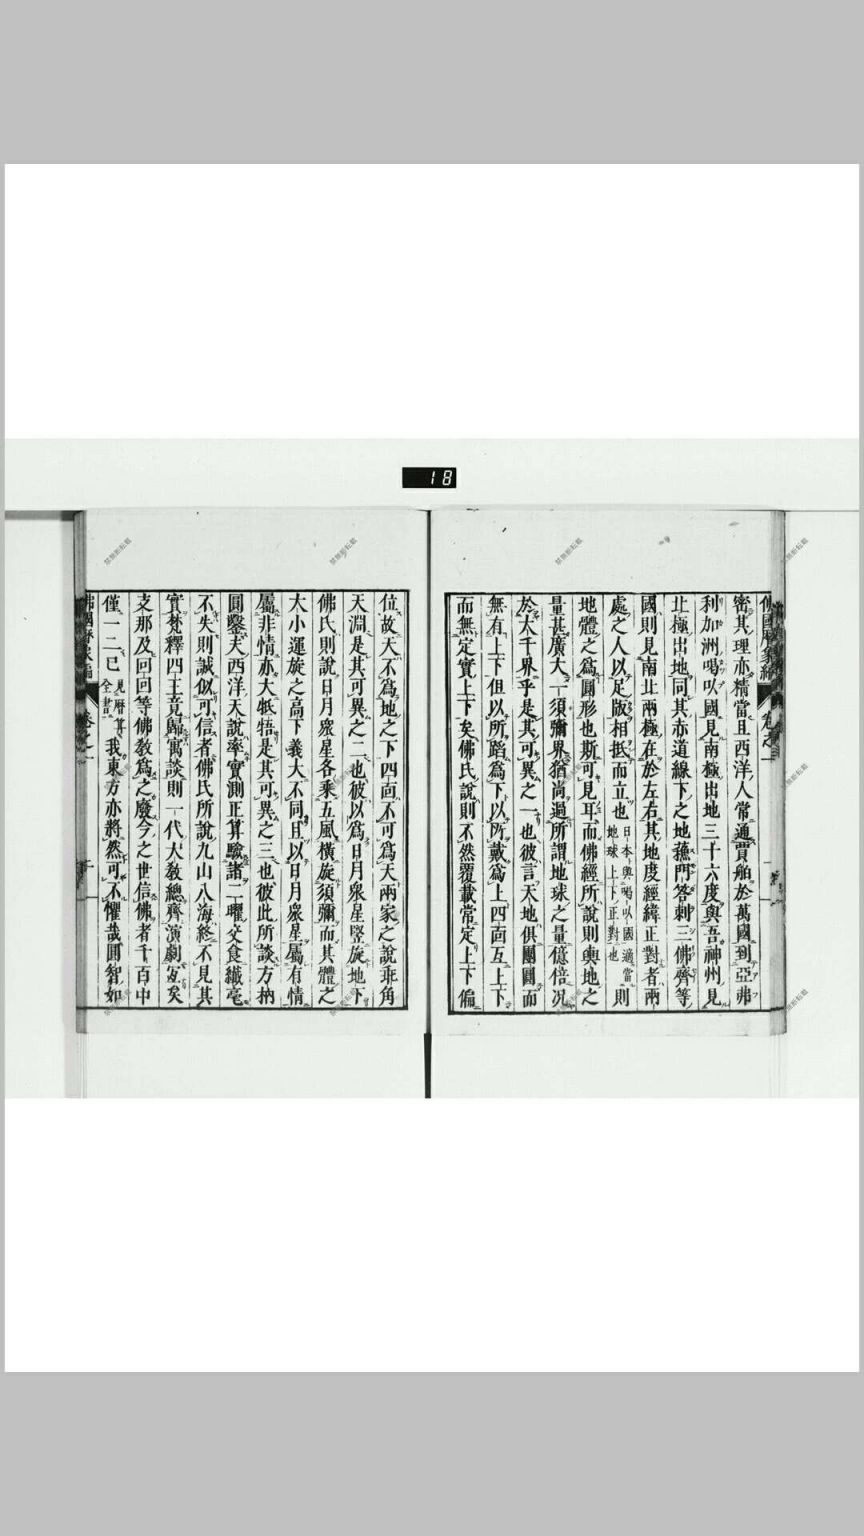 18
佛國曆象編 卷之一
密其理亦精當且西洋人常通賈舶於萬國到亞弗
利加洲喝叺國見南極出地三十六度與吾神州見
北極出地同其赤道線下之地蘓門答剌三佛齊等
國則見南北兩極在於左右其地度經緯正對者兩
處之人以足版相抵而立也日本與喝叺國適當地球上下正對也則
地體之爲圓形也斯可見耳而佛經所說則輿地之
量甚廣大一須彌界猶尚過所謂地球之量億倍况
於大千界乎是其可異之一也彼言天地俱團圓而
無有上下但以所蹈爲下以所戴爲上四面互上下
而無定實上下矣佛氏說則不然覆載常定上下偏
位故天不爲地之下四面不可爲天兩家之說乖角
天淵是其可異之二也彼以爲日月衆星竪旋地下
佛氏則說日月衆星各乘五風橫旋須彌而其體之
大小運旋之高下義大不同且以日月衆星屬有情
屬非情亦大牴牾是其可異之三也彼此所談方枘
圓鑿夫西洋天說率實測正算驗諸二曜交食纎毫
不失則誠似可信者佛氏所說九山八海終不見其
實梵釋四王竟歸寓談則一代大敎總齊演劇宐矣
支那及回回等佛敎爲之廢今之世信佛者千百中
僅一二已見曆算全書我東方亦將然可不懼哉圓智如
佛國曆象編 卷之一
禁無断転載
禁無断転載
禁無断転載
禁無断転載